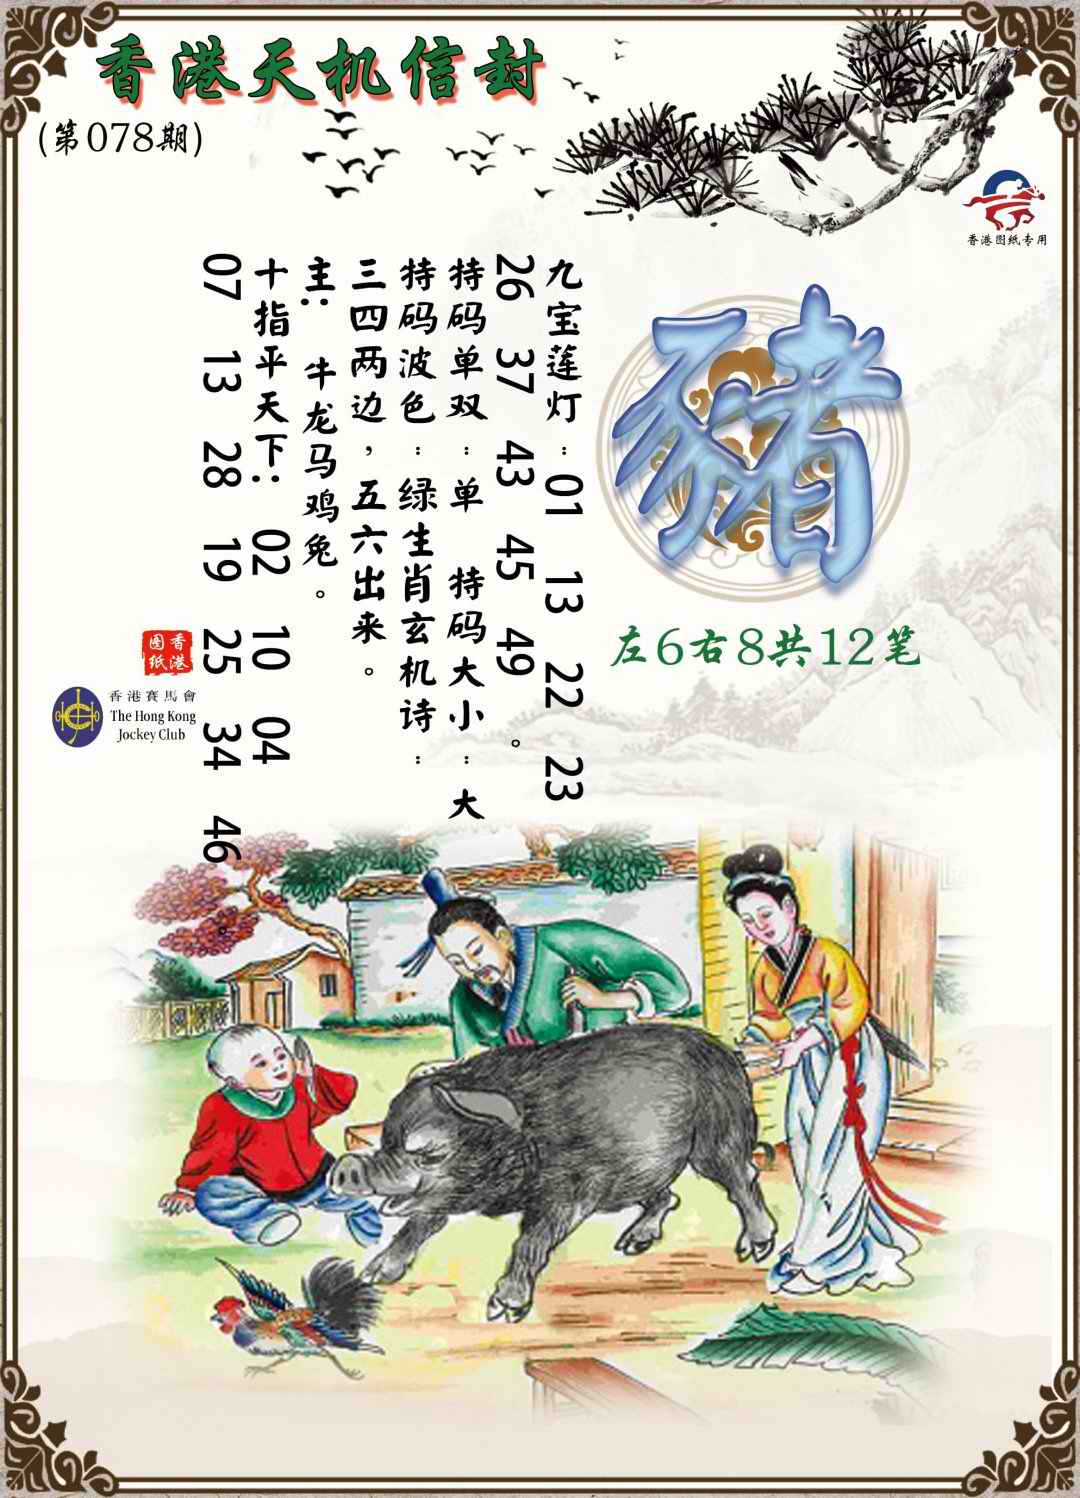 香港天机信封
(第078期)
香港图纸专用
豬
左6右8共12笔
九宝莲灯:01 13 22 23
26 37 43 45 49。
特码单双:单 特码大小:大
特码波色:绿生肖玄机诗:
三四两边,五六出来。
主: 牛龙马鸡兔。
十指平天下: 02 10 04
07 13 28 19 25 34 46。
香港图纸
香港賽馬會
The Hong Kong
Jockey Club